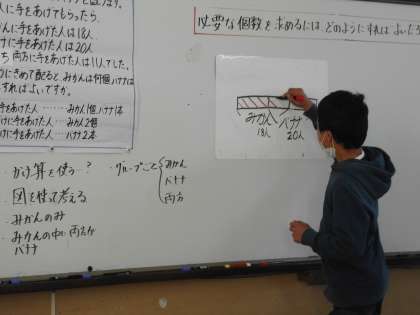 に手をあけてもらったら、
んに手をあけた人は18人
けに手をあけた人は20人
ち両方に手をあけた人は11人でした。
りにきめて配ると、みかんは何個、バナナは
すればよいですか。
手をあけた人……みかん1個 バナナ1本
けに手をあけた人……みかん2個
けに手をあけた人……バナナ2本
必要な個数を求めるには、どのようにすればよいだろ
みかん バナナ
18人 20人
・かけ算を使う…?
・図を使って考える
・みかんのみ
・みかんの中に両方が
バナナ
・グループごと
みかん
バナナ
両方